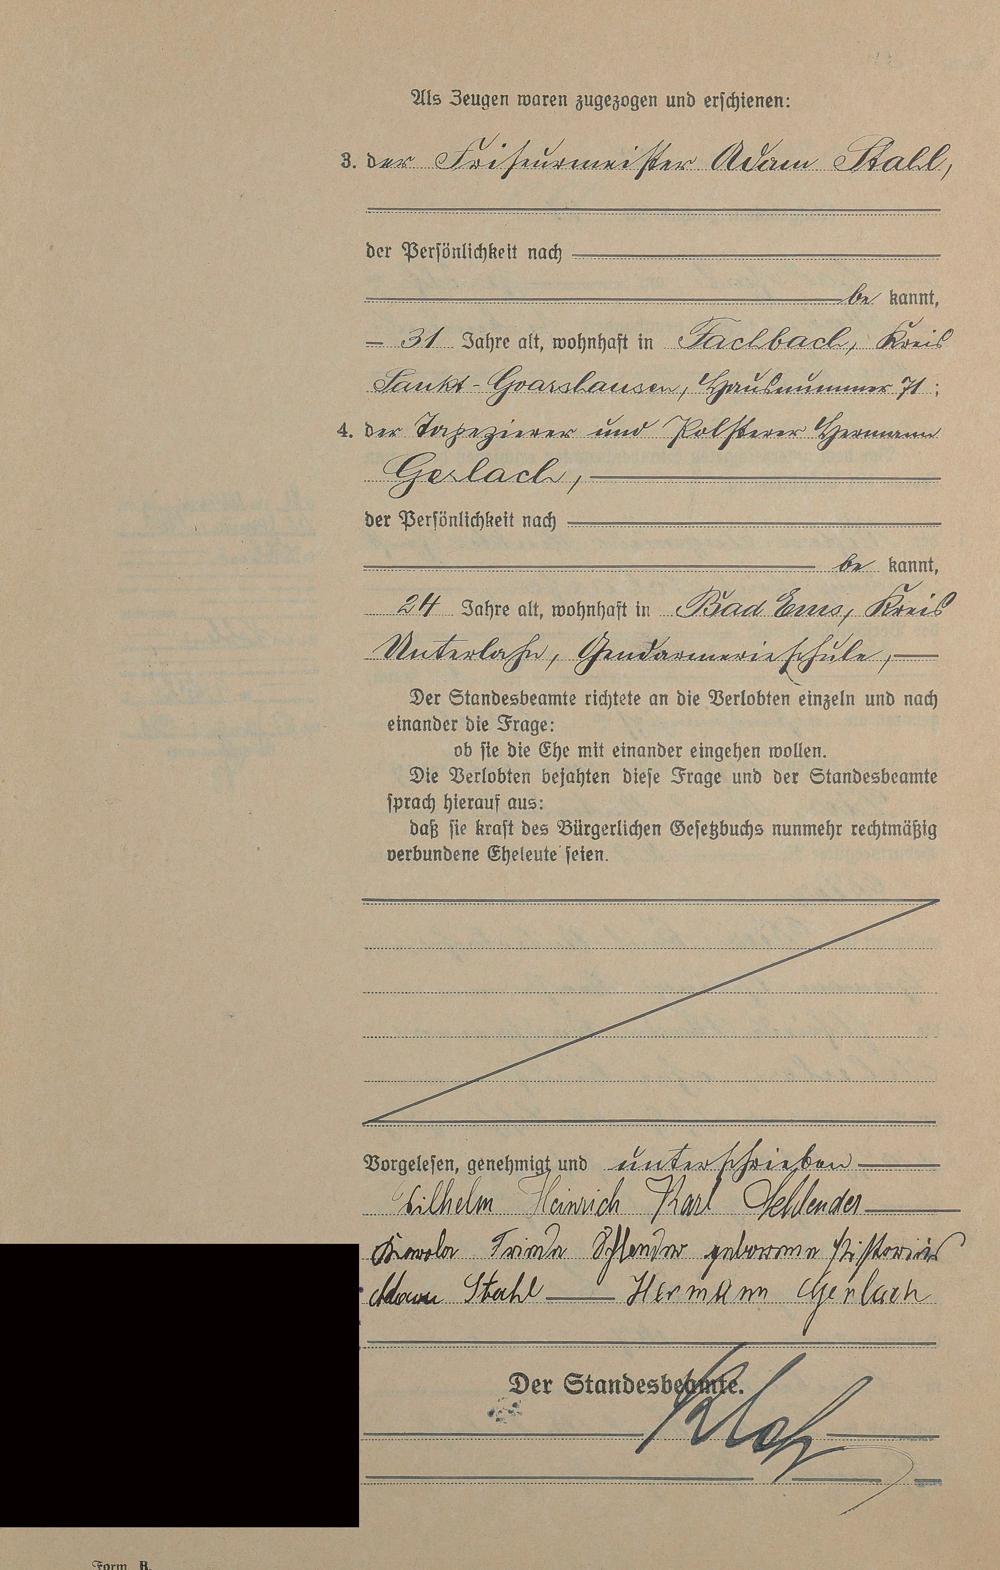 Als Zeugen waren zugezogen und erschienen:
3. der Friseurmeister Adam Stahl,
der Persönlichkeit nach
be kannt,
31 Jahre alt, wohnhaft in Fachbach, Kreis
Sankt-Goarshausen, Hausnummer 71;
4. der Tapezierer und Polsterer Hermann
Gerlach,
der Persönlichkeit nach
be kannt,
24 Jahre alt, wohnhaft in Bad Ems, Kreis
Unterlahn, Gendarmerieschule,
Der Standesbeamte richtete an die Verlobten einzeln und nach
einander die Frage:
ob sie die Ehe mit einander eingehen wollen.
Die Verlobten bejahten diese Frage und der Standesbeamte
sprach hierauf aus:
daß sie kraft des Bürgerlichen Gesetzbuchs nunmehr rechtmäßig
verbundene Eheleute seien.
Vorgelesen, genehmigt und unterschrieben
Wilhelm Heinrich Karl Schlender
Frieda Schlender geborene Pistorius
Adam Stahl Hermann Gerlach
Der Standesbeamte.
Form. B.